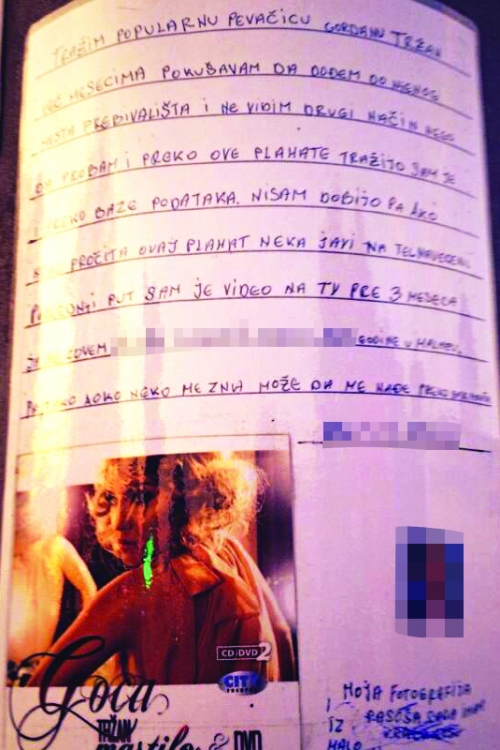 TRAŽIM POPULARNU PEVAČICU GORDANU TRŽAN
VEĆ MESECIMA POKUŠAVAM DA DOĐEM DO NJENOG
MESTA PREBIVALIŠTA i NE VIDIM DRUGI NAČIN NEGO
DA PROBAM i PREKO OVE PLAHATE TRAŽIJO SAM JE
I PREKO BAZE PODATAKA. NISAM DOBIJO PA AKO
PROČITA OVAJ PLAHAT NEKA JAVI NA TEL NAVEDENI
PUT SAM JE VIDEO NA TV PRE 3 MESECA
GODINE U
AKO NEKO ME ZNA MOŽE DA ME NAĐE PREKO
CD+DVD 2
CITY
RECORDS
Goca
TRŽAN
mastilo & DVD
MOJA FOTOGRAFIJA
IZ PASOŠA SADA IMAM
MALO